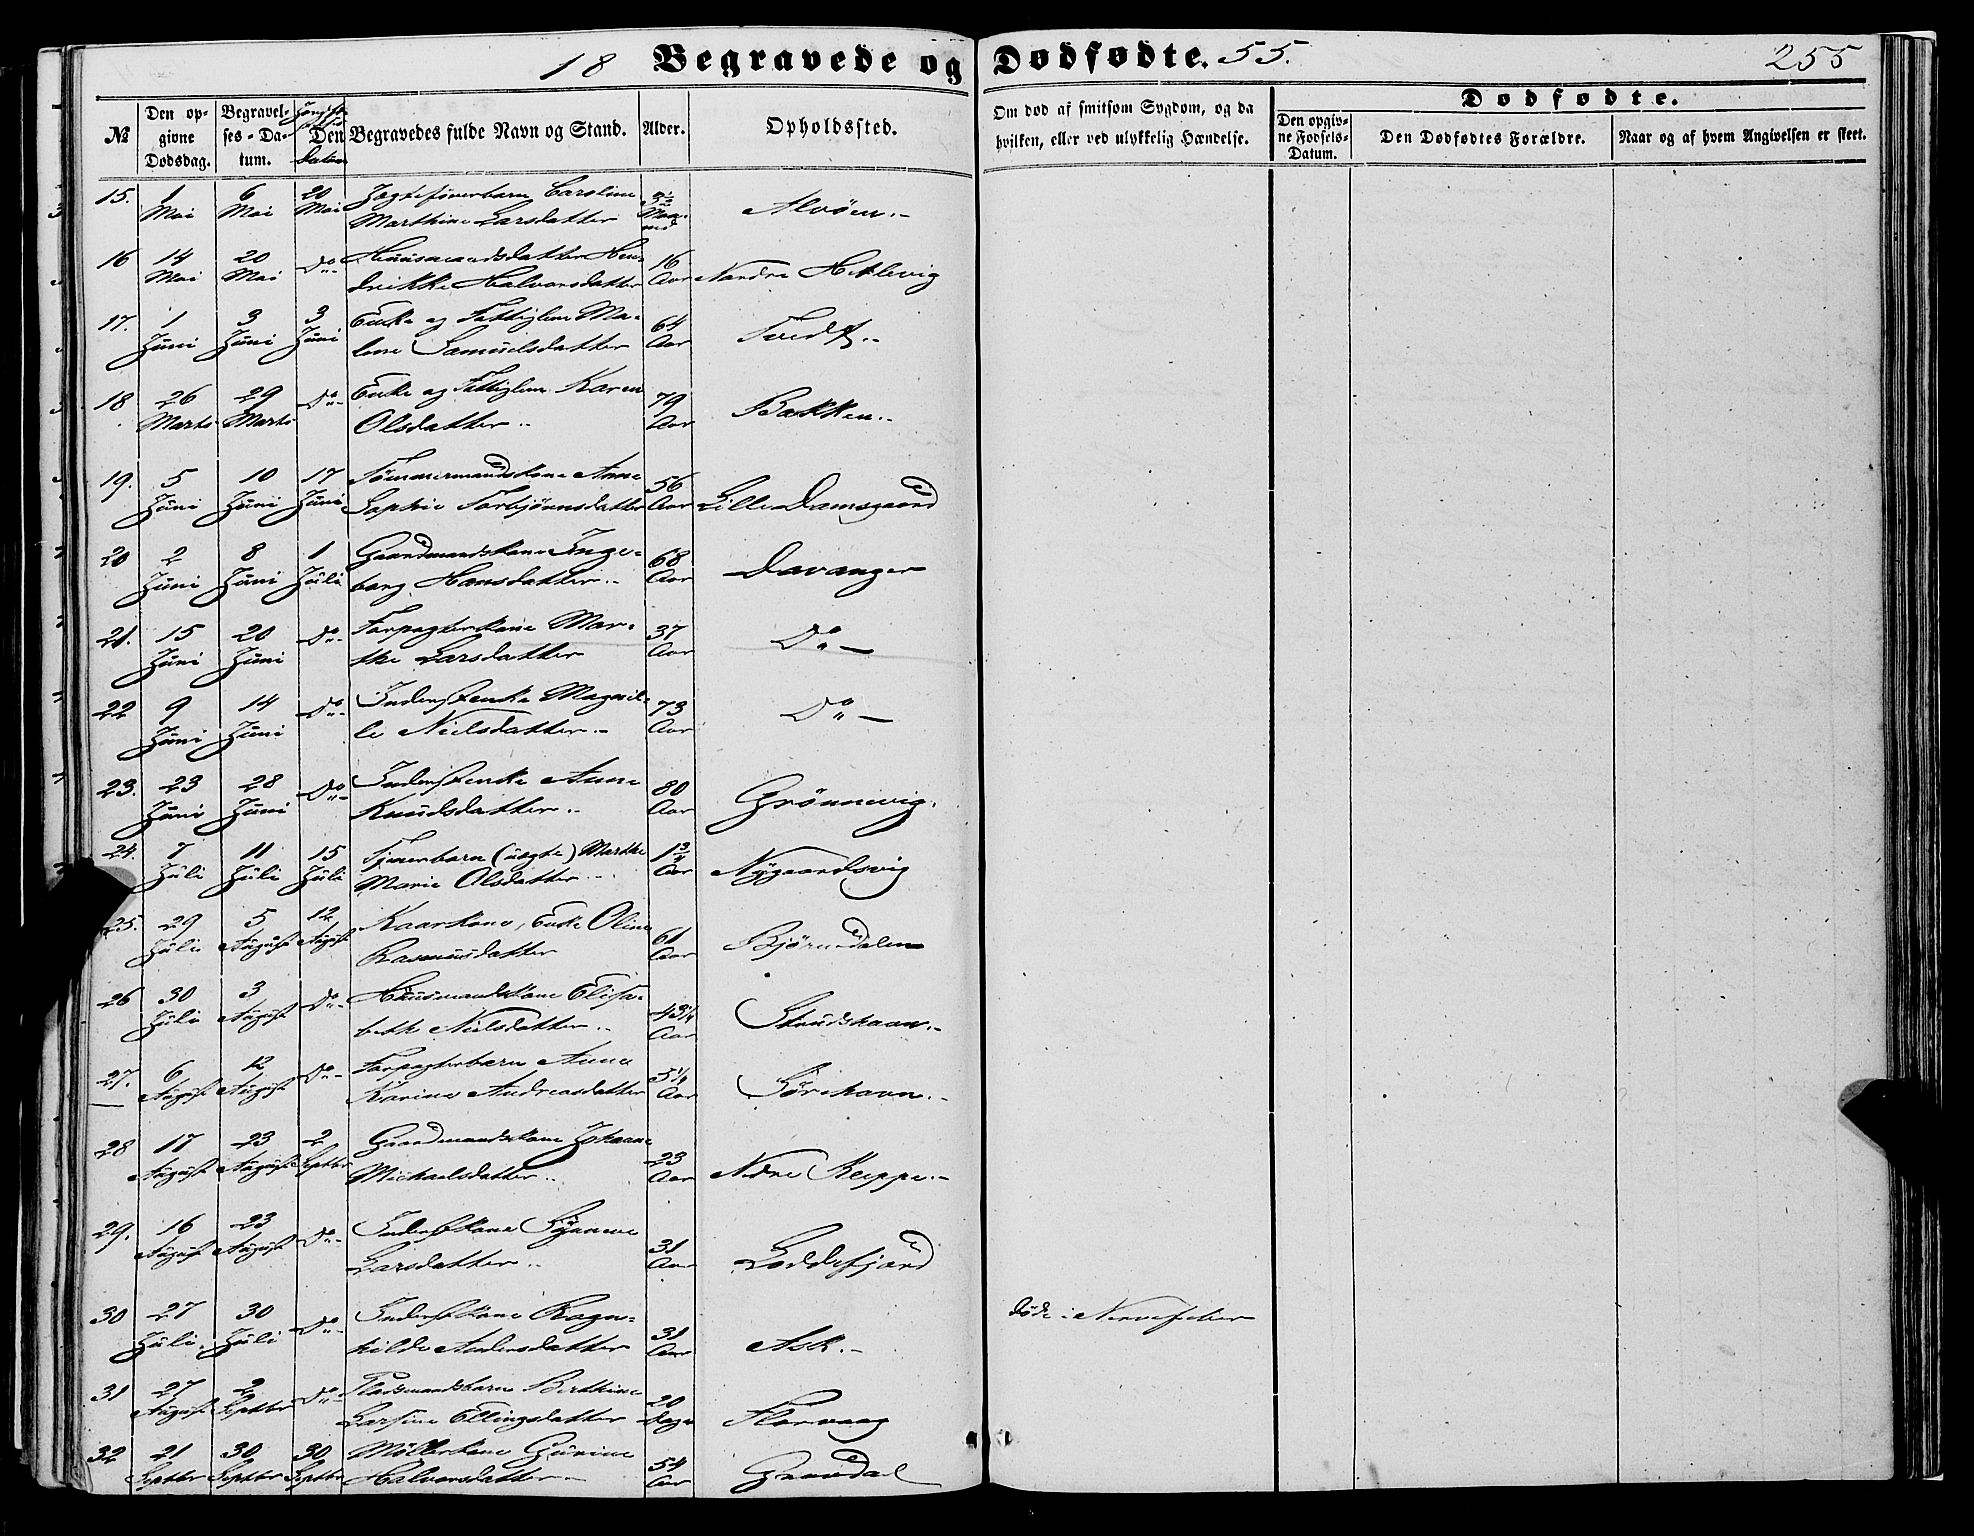 18 Begravede og Dødfødte. 55. 255
№
Den opgivne Dødsdag.
Begravelses-Datum.
Datum
Den Begravedes fulde Navn og Stand.
Alder.
Opholdssted.
Om død af smitsom Sygdom, og da hvilken, eller ved ulykkelig Hændelse.
Dødfødte.
Den opgivne Fødsels-Datum.
Den Dødfødtes Forældre.
Naar og af hvem Angivelsen er skeet.
15. 1 6 20 Jagteførerbarn Caroline 3½
Mai Mai Mai Marthine Larsdatter Maaned Alvøen.-
16 14 20 Do- Huusmandsdatter Hen- 16
Mai Mai drikke Halvorsdatter Aar Nordre Hetlevig
17. 1 3 3 Enke og Fattiglem Ma- 64
Juni Juni Juni lene Samuelsdatter Aar Tvedt.-
18 26 29 Do- Enke og Fattiglem Karen 79
Marts Marts Olsdatter.. Aar Bakken.-
19. 5 10 17 Tömmermandskone Anne 56
Juni Juni Juni Sophie Torbjørnsdatter Aar Lille Damsgaard
20 2 8 1 Gaardmandskone Inge- 68
Juni Juni Juli borg Hansdatter.- Aar Davanger
21. 15 20 Do- Forpagterkone Mar- 37
Juni Juni the Larsdatter Aar Do-
22 9 14 Do- Inderstenke Magnil- 73
Juni Juni le Nielsdatter.- Aar Do-
23. 23 28 Do- Inderstenke Anne 80
Juni Juni Knudsdatter.. Aar Grönnevig.
24. 7 11 15 Tjenerbarn (uægte) Marthe 1¾
Juli Juli Juli Marie Olsdatter.- Aar Nygaardsvig
25. 29 5 12 Kaarkone, Enke Oline 61
Juli August August Rasmusdatter Aar Bjørndalen
26 30 3 Do- Huusmandskone Elisa- 43¼
Juli August beth Nielsdatter.. Aar Strudshavn.-
27. 6 12 Do- Forpagterbarn Anna 5¼
August August Karine Andreasdatter Aar Sörehavn.-
28 17 23 2 Gaardmandskone Johanne 23
August August Septbr Michaelsdatter.. Aar Nedre Kleppe.-
29. 16 23 Do- Inderstkone Synneve 31
August August Larsdatter.. Aar Loddefjord
30 27 30 Do- Inderstkone Ragn- 31
Juli. Juli hilde Andersdatter Aar Ask.- døde i Nervefeber
31 27 2 Do- Pladsmandsbarn Berthine 20
August Septbr Larsine Ellingsdatter Dage Florvaag
32 21 30 30 Møllerkone Gurine 54
Septbr Septbr Septbr Halvorsdatter- Aar Gravdal